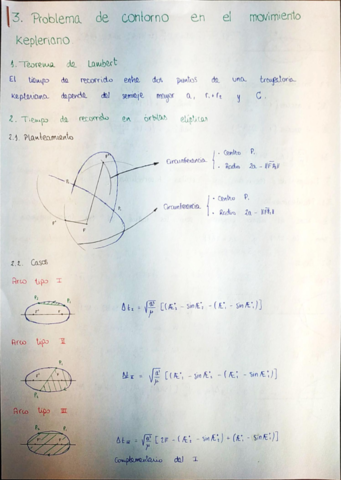 3. Problema de contorno en el movimiento
kepleriano.
1. Teorema de Lambert
El tiempo de recorrido entre dos puntos de una trayectoria
kepleriana depende del semieje mayor a, r₁+r₂ y C.
2. Tiempo de recorrido en órbitas elípticas
2.1. Planteamiento
Circunferencia
- Centro P₁
- Radio 2a -
Circunferencia
- Centro P₂
- Radio 2a -
2.2. Casos
Arco tipo I
P₂ P₁
Δt₁ = √(a³/μ) [(Æ₂ - sinÆ₂) - (Æ₁ - sinÆ₁)]
Arco tipo II
Arco tipo III
Complementario del I